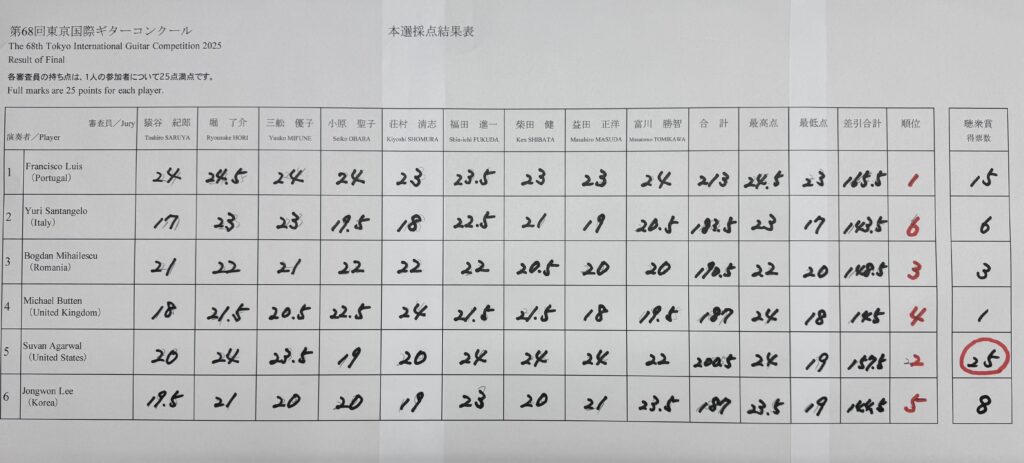 第68回東京国際ギターコンクール
本選採点結果表
The 68th Tokyo International Guitar Competition 2025
Result of Final
各審査員の持ち点は、1人の参加者について25点満点です。
Full marks are 25 points for each player.
審査員／Jury 猿谷 紀郎 堀 了介 三舩 優子 小原 聖子 荘村 清志 福田 進一 柴田 健 益田 正洋 富川 勝智 合計 最高点 最低点 差引合計 順位 聴衆賞
演奏者／Player Toshiro SARUYA Ryousuke HORI Yuuko MIFUNE Seiko OBARA Kiyoshi SHOMURA Shin-ichi FUKUDA Ken SHIBATA Masahiro MASUDA Masatomo TOMIKAWA 得票数
1 Francisco Luis
（Portugal） 24 24.5 24 24 23 23.5 23 23 24 213 24.5 23 165.5 1 15
2 Yuri Santangelo
（Italy） 17 23 23 19.5 18 22.5 21 19 20.5 183.5 23 17 143.5 6 6
3 Bogdan Mihailescu
（Romania） 21 22 21 22 22 22 20.5 20 20 190.5 22 20 148.5 3 3
4 Michael Butten
（United Kingdom） 18 21.5 20.5 22.5 24 21.5 21.5 18 19.5 187 24 18 145 4 1
5 Suvan Agarwal
（United States） 20 24 23.5 19 20 24 24 24 22 200.5 24 19 157.5 2 25
6 Jongwon Lee
（Korea） 19.5 21 20 20 19 23 20 21 23.5 187 23.5 19 144.5 5 8